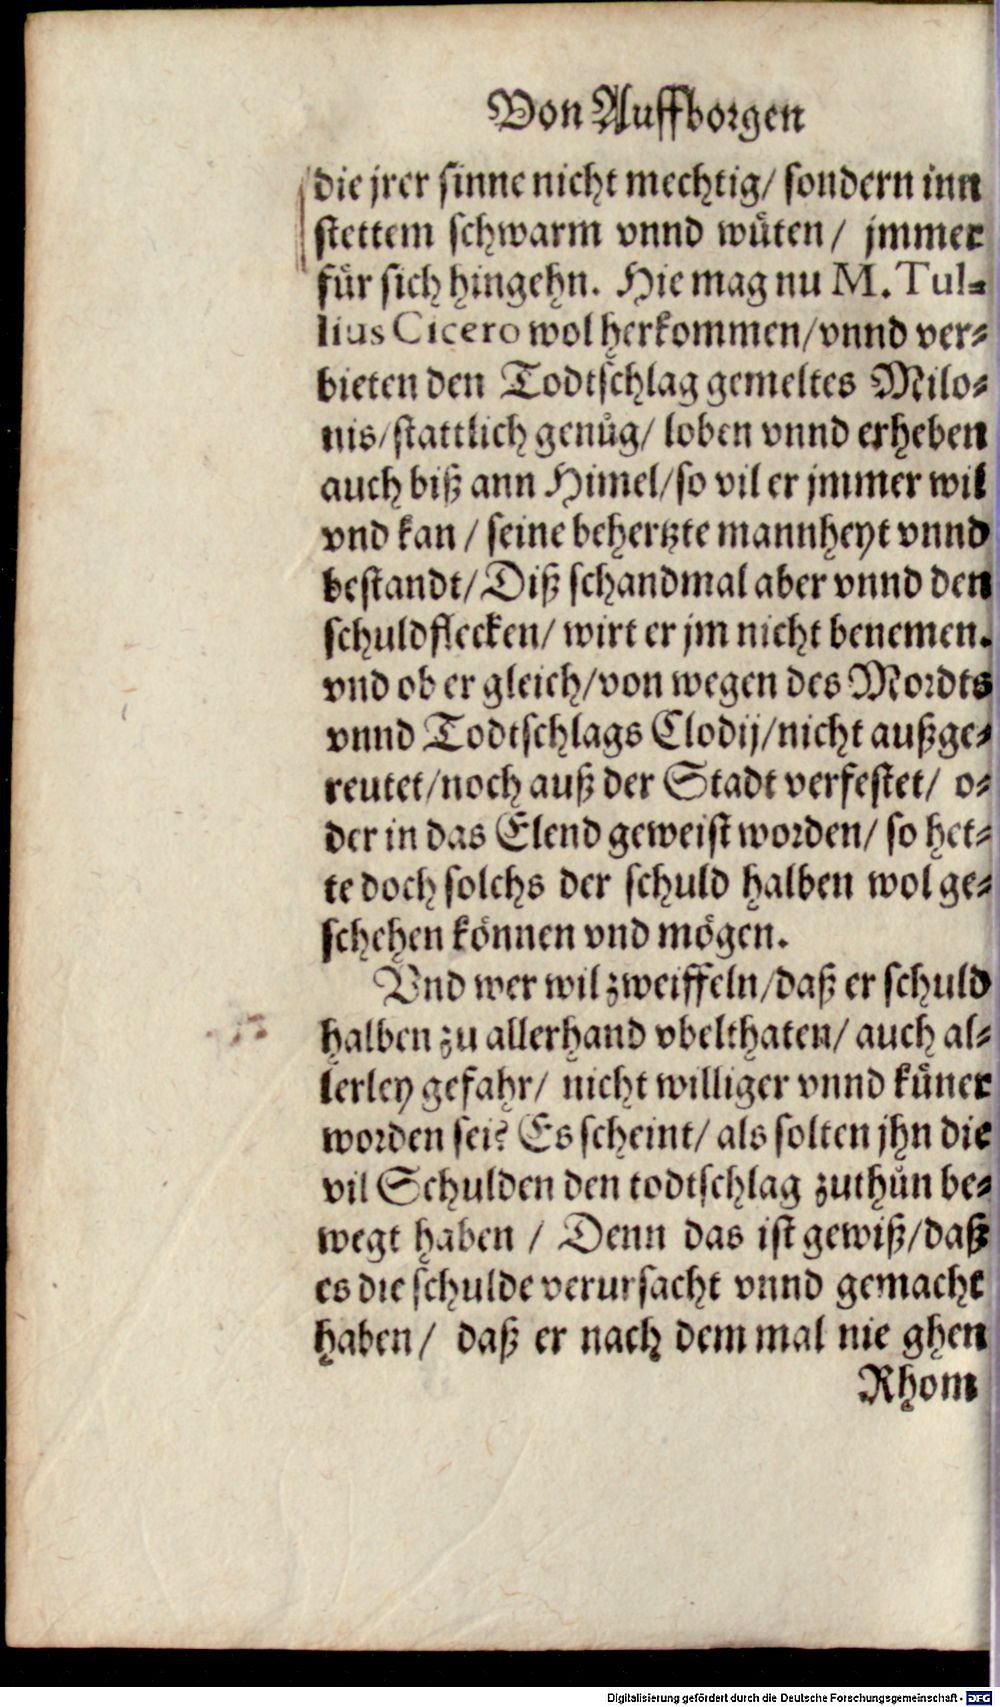 Von Auffborgen
die jrer sinne nicht mechtig/ sondern inn
stettem schwarm vnnd wüten/ jmmer
für sich hingehn. Hie mag nu M. Tul-
lius Cicero wol herkommen/ vnnd ver-
bieten den Todtschlag gemeltes Milo-
nis/ stattlich genůg/ loben vnnd erheben
auch biß ann Himel/ so vil er jmmer wil
vnd kan / seine behertzte mannheyt vnnd
bestandt/ Diß schandmal aber vnnd den
schuldflecken/ wirt er jm nicht benemen.
vnd ob er gleich/ von wegen des Mordts
vnnd Todtschlags Clodij/ nicht außge-
reutet/ noch auß der Stadt verfestet/ o-
der in das Elend geweist worden/ so het-
te doch solchs der schuld halben wol ge-
schehen können vnd mögen.
Vnd wer wil zweiffeln/ daß er schuld
halben zu allerhand vbelthaten/ auch al-
lerley gefahr/ nicht williger vnnd küner
worden sei? Es scheint/ als solten jhn die
vil Schulden den todtschlag zuthůn be-
wegt haben / Denn das ist gewiß/ daß
es die schulde verursacht vnnd gemacht
haben/ daß er nach dem mal nie ghen
Rhom
Digitalisierung gefördert durch die Deutsche Forschungsgemeinschaft - DFG